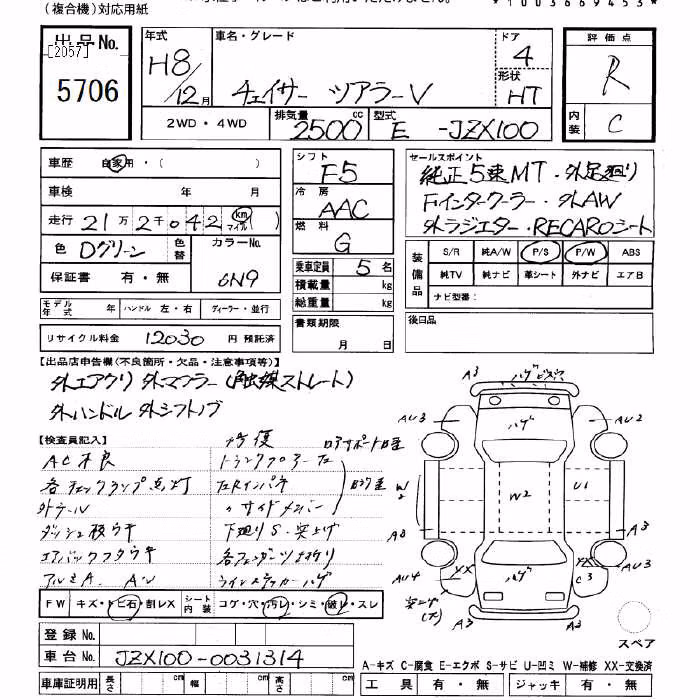 (複合機)対応用紙
*1003669453*
出品No.
[2057]
5706
年式
H8/12月
車名・グレード
チェイサー ツアラーV
ドア
4
形状
HT
2WD・4WD
排気量
2500cc
型式
E -JZX100
評価点
R
内装
C
車歴 自家用・( )
車検 年 月
走行 21万2千042 km マイル
色 Dグリーン
色替
カラーNo.
6N9
保証書 有・無
シフト
F5
冷房
AAC
燃料
G
乗車定員 5名
積載量 kg
総重量 kg
書類期限
月 日
セールスポイント
純正5速MT・外足廻り
F.インタークーラー・外AW
外ラジエター・RECAROシート
装備品
S/R 純A/W P/S P/W ABS
純TV 純ナビ 革シート 外ナビ エアB
ナビ型番:
モデル年式 年 ハンドル 左・右 ディーラー・並行
リサイクル料金 12030 円 預託済
後日品
【出品店申告欄(不良箇所・欠品・注意事項等)】
外エアクリ 外マフラー(触媒ストレート)
外ハンドル 外シフトノブ
【検査員記入】
修復
AC不良
各チェックランプ点灯
外テール
ダッシュ板ウキ
エアバックフタウキ
アルミA. AU
トランクフロアー
サイドメンバー
下廻りS・突上げ
各フェンダーツメ折り
A3
ハゲ
AU3
AU2
ハゲ
W2
W2
U1
A3
A3
AU4
XX
ハゲ
XX
C3
A3
突上げ(大)
A3
A3
FW キズ・トビ石・割レX
シート内装 コゲ・穴・汚レ・シミ・破レ・スレ
登録No.
車台No. JZX100-0031314
車庫証明用 長さ cm 幅 cm 高さ cm
スペア
A-キズ C-腐食 E-エクボ S-サビ U-凹ミ W-補修 XX-交換済
工具 有・無 ジャッキ 有・無